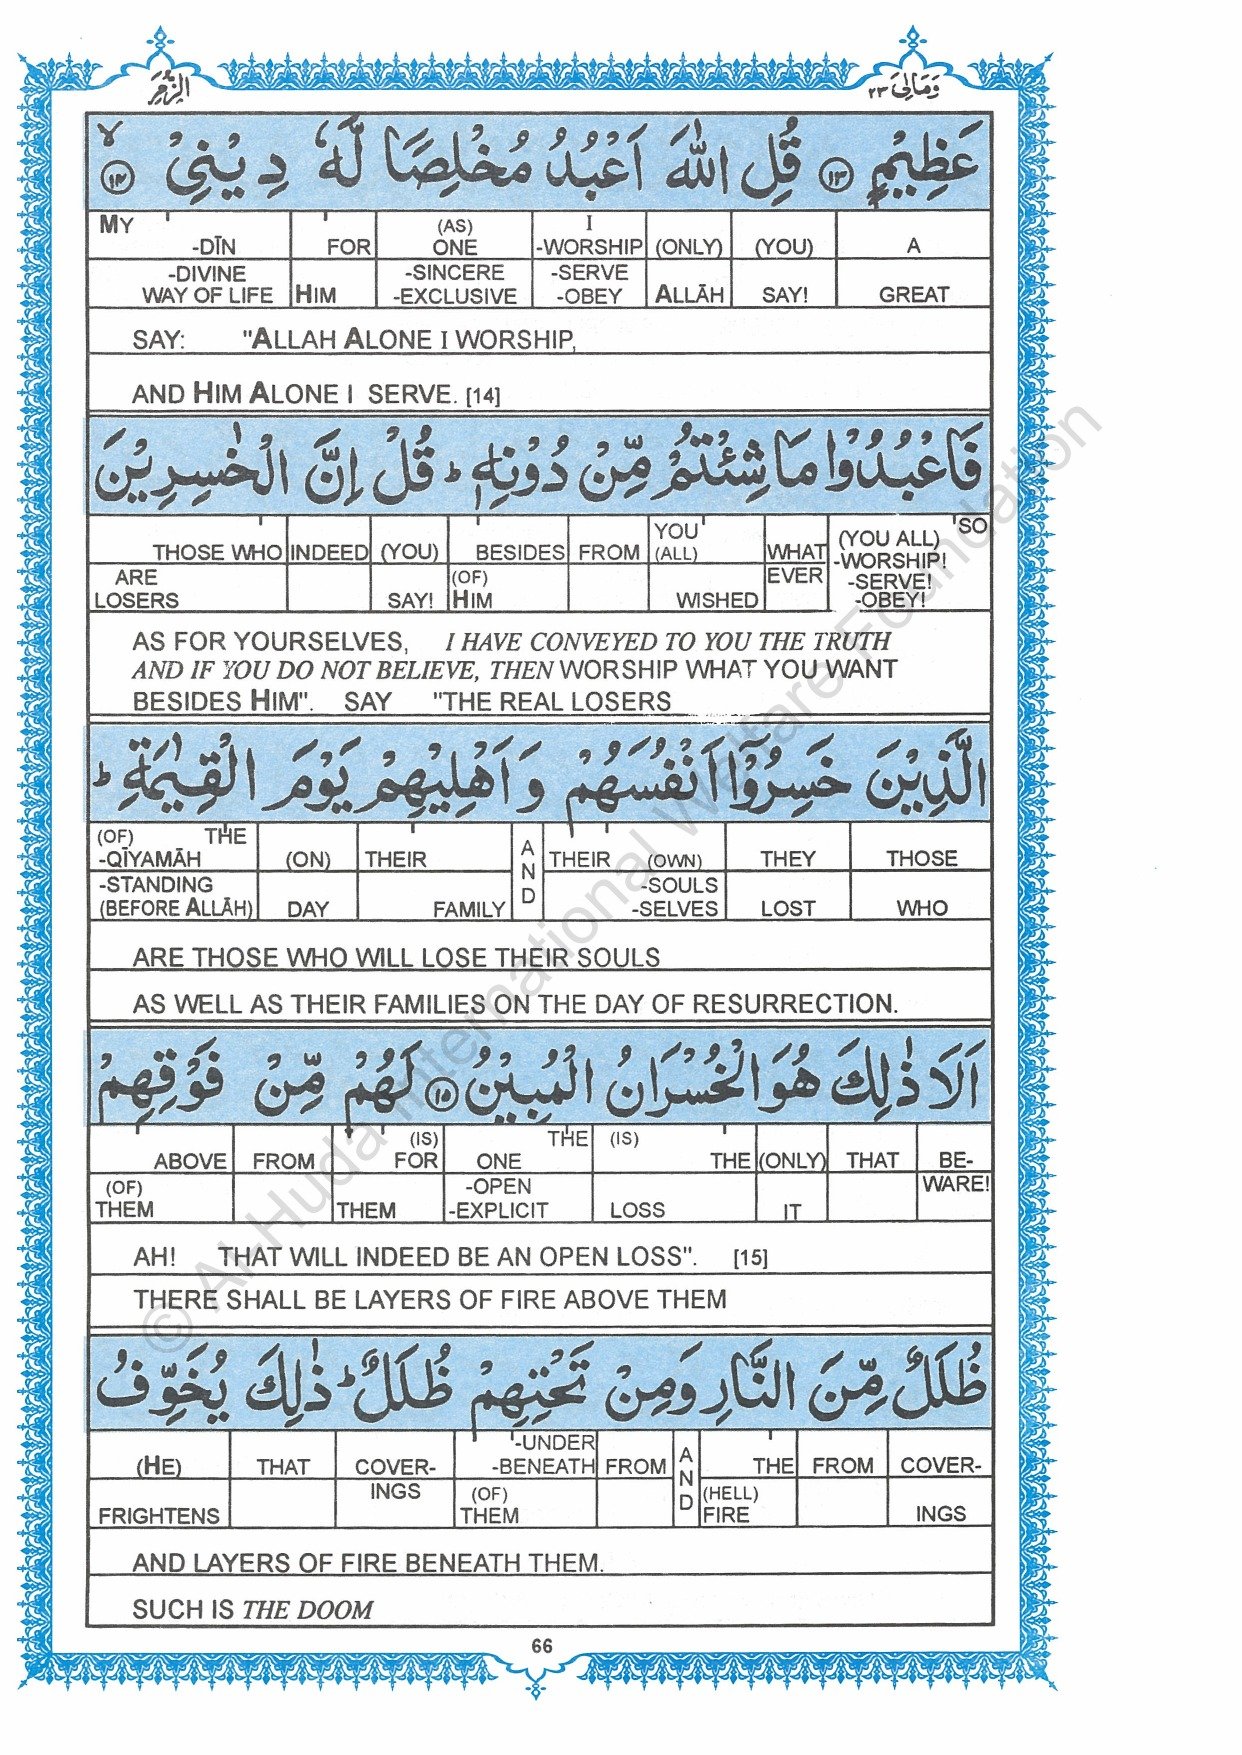 الزُّمَر
وَمَالِيَ ٢٣
عَظِيْمٍ ١٣ قُلِ اللّٰهَ اَعْبُدُ مُخْلِصًا لَّهٗ دِيْنِيْ ١٤ ۙ
MY -DĪN | FOR | (AS) ONE | I -WORSHIP | (ONLY) | (YOU) | A
-DIVINE WAY OF LIFE | HIM | -SINCERE -EXCLUSIVE | -SERVE -OBEY | ALLĀH | SAY! | GREAT
SAY: "ALLAH ALONE I WORSHIP,
AND HIM ALONE I SERVE. [14]
فَاعْبُدُوْا مَا شِئْتُمْ مِّنْ دُوْنِهٖ ؕ قُلْ اِنَّ الْخٰسِرِيْنَ
THOSE WHO | INDEED | (YOU) | BESIDES | FROM | YOU (ALL) | WHAT | SO (YOU ALL) -WORSHIP!
ARE LOSERS | SAY! | (OF) HIM | WISHED | EVER | -SERVE! -OBEY!
AS FOR YOURSELVES, I HAVE CONVEYED TO YOU THE TRUTH
AND IF YOU DO NOT BELIEVE, THEN WORSHIP WHAT YOU WANT
BESIDES HIM". SAY "THE REAL LOSERS
الَّذِيْنَ خَسِرُوْۤا اَنْفُسَهُمْ وَاَهْلِيْهِمْ يَوْمَ الْقِيٰمَةِ ؕ
(OF) THE -QĪYAMĀH | (ON) | THEIR | AND | THEIR (OWN) | THEY | THOSE
-STANDING (BEFORE ALLĀH) | DAY | FAMILY | -SOULS -SELVES | LOST | WHO
ARE THOSE WHO WILL LOSE THEIR SOULS
AS WELL AS THEIR FAMILIES ON THE DAY OF RESURRECTION.
اَلَا ذٰلِكَ هُوَ الْخُسْرَانُ الْمُبِيْنُ ١٥ لَهُمْ مِّنْ فَوْقِهِمْ
ABOVE | FROM | (IS) FOR | THE ONE | (IS) THE | (ONLY) | THAT | BE-
(OF) THEM | THEM | -OPEN -EXPLICIT | LOSS | IT | WARE!
AH! THAT WILL INDEED BE AN OPEN LOSS". [15]
THERE SHALL BE LAYERS OF FIRE ABOVE THEM
ظُلَلٌ مِّنَ النَّارِ وَمِنْ تَحْتِهِمْ ظُلَلٌ ؕ ذٰلِكَ يُخَوِّفُ
(HE) | THAT | COVER- | -UNDER -BENEATH | FROM | AND | THE | FROM | COVER-
FRIGHTENS | INGS | (OF) THEM | (HELL) FIRE | INGS
AND LAYERS OF FIRE BENEATH THEM.
SUCH IS THE DOOM
66
© Al-Huda International Welfare Foundation